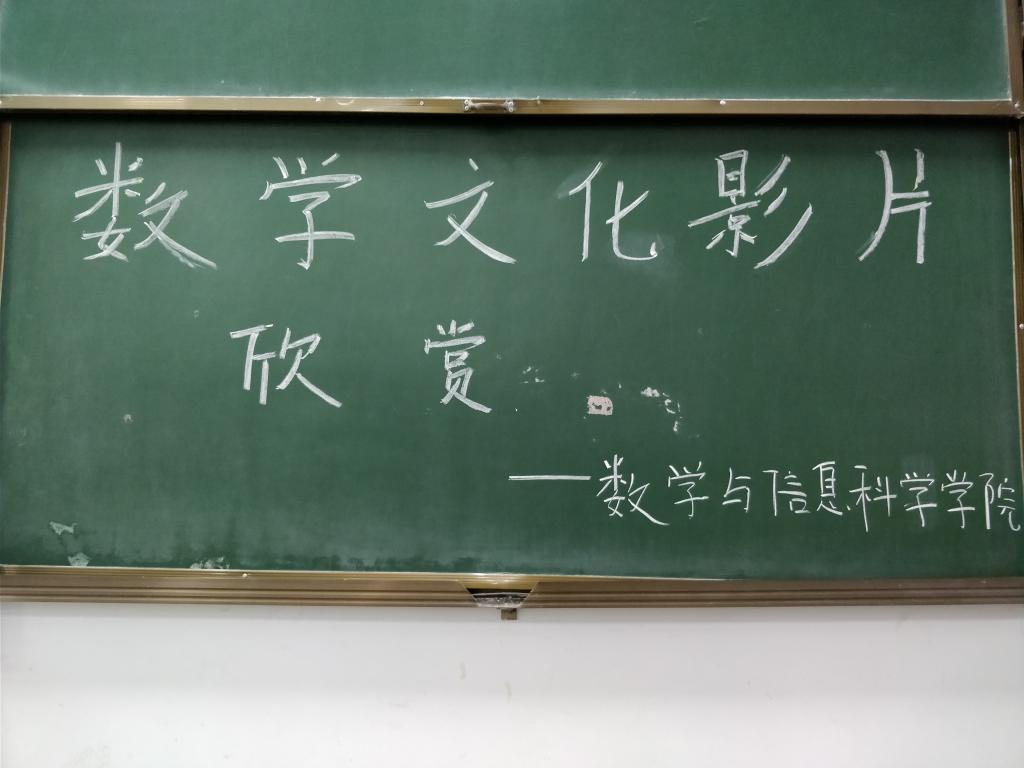 数学文化影片
欣赏
——数学与信息科学学院